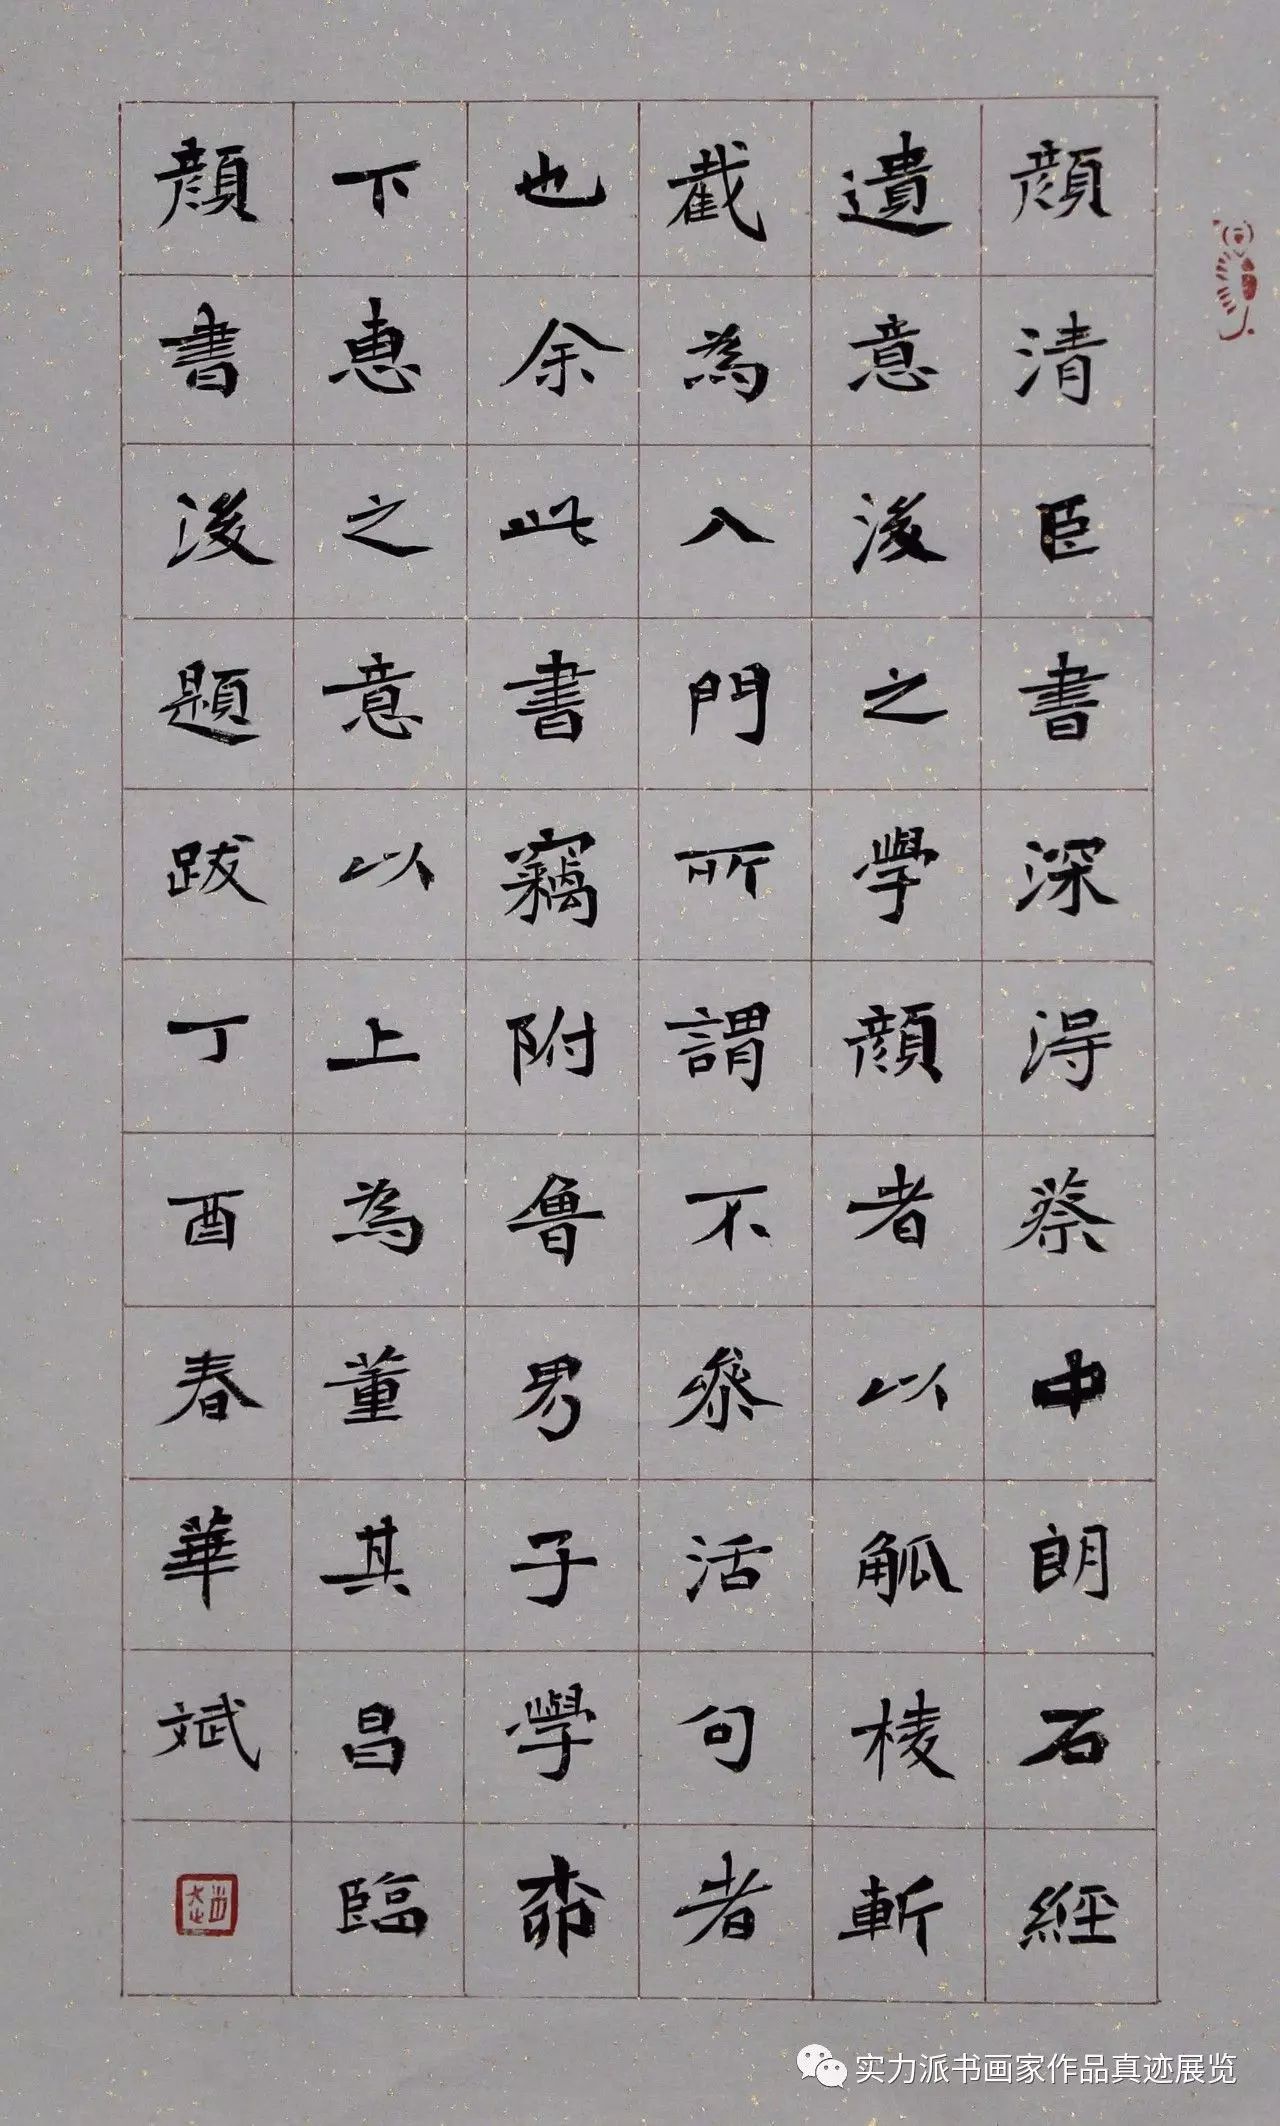 顏清臣書深淂蔡中朗石經
遺意後之學顏者以觚棱斬
截為入門所謂不叅活句者
也余此書竊附魯男子學柳
下惠之意以上為董其昌臨
顏書後題跋丁酉春華斌
实力派书画家作品真迹展览